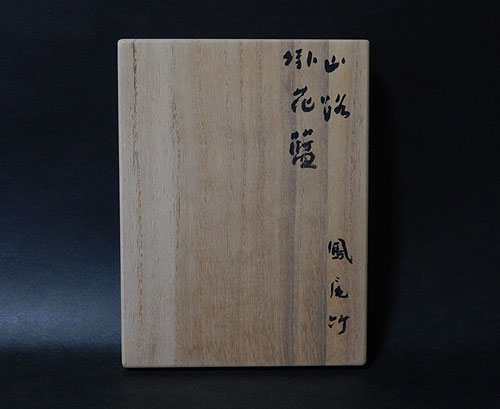 山路
掛花籃
鳳尾竹